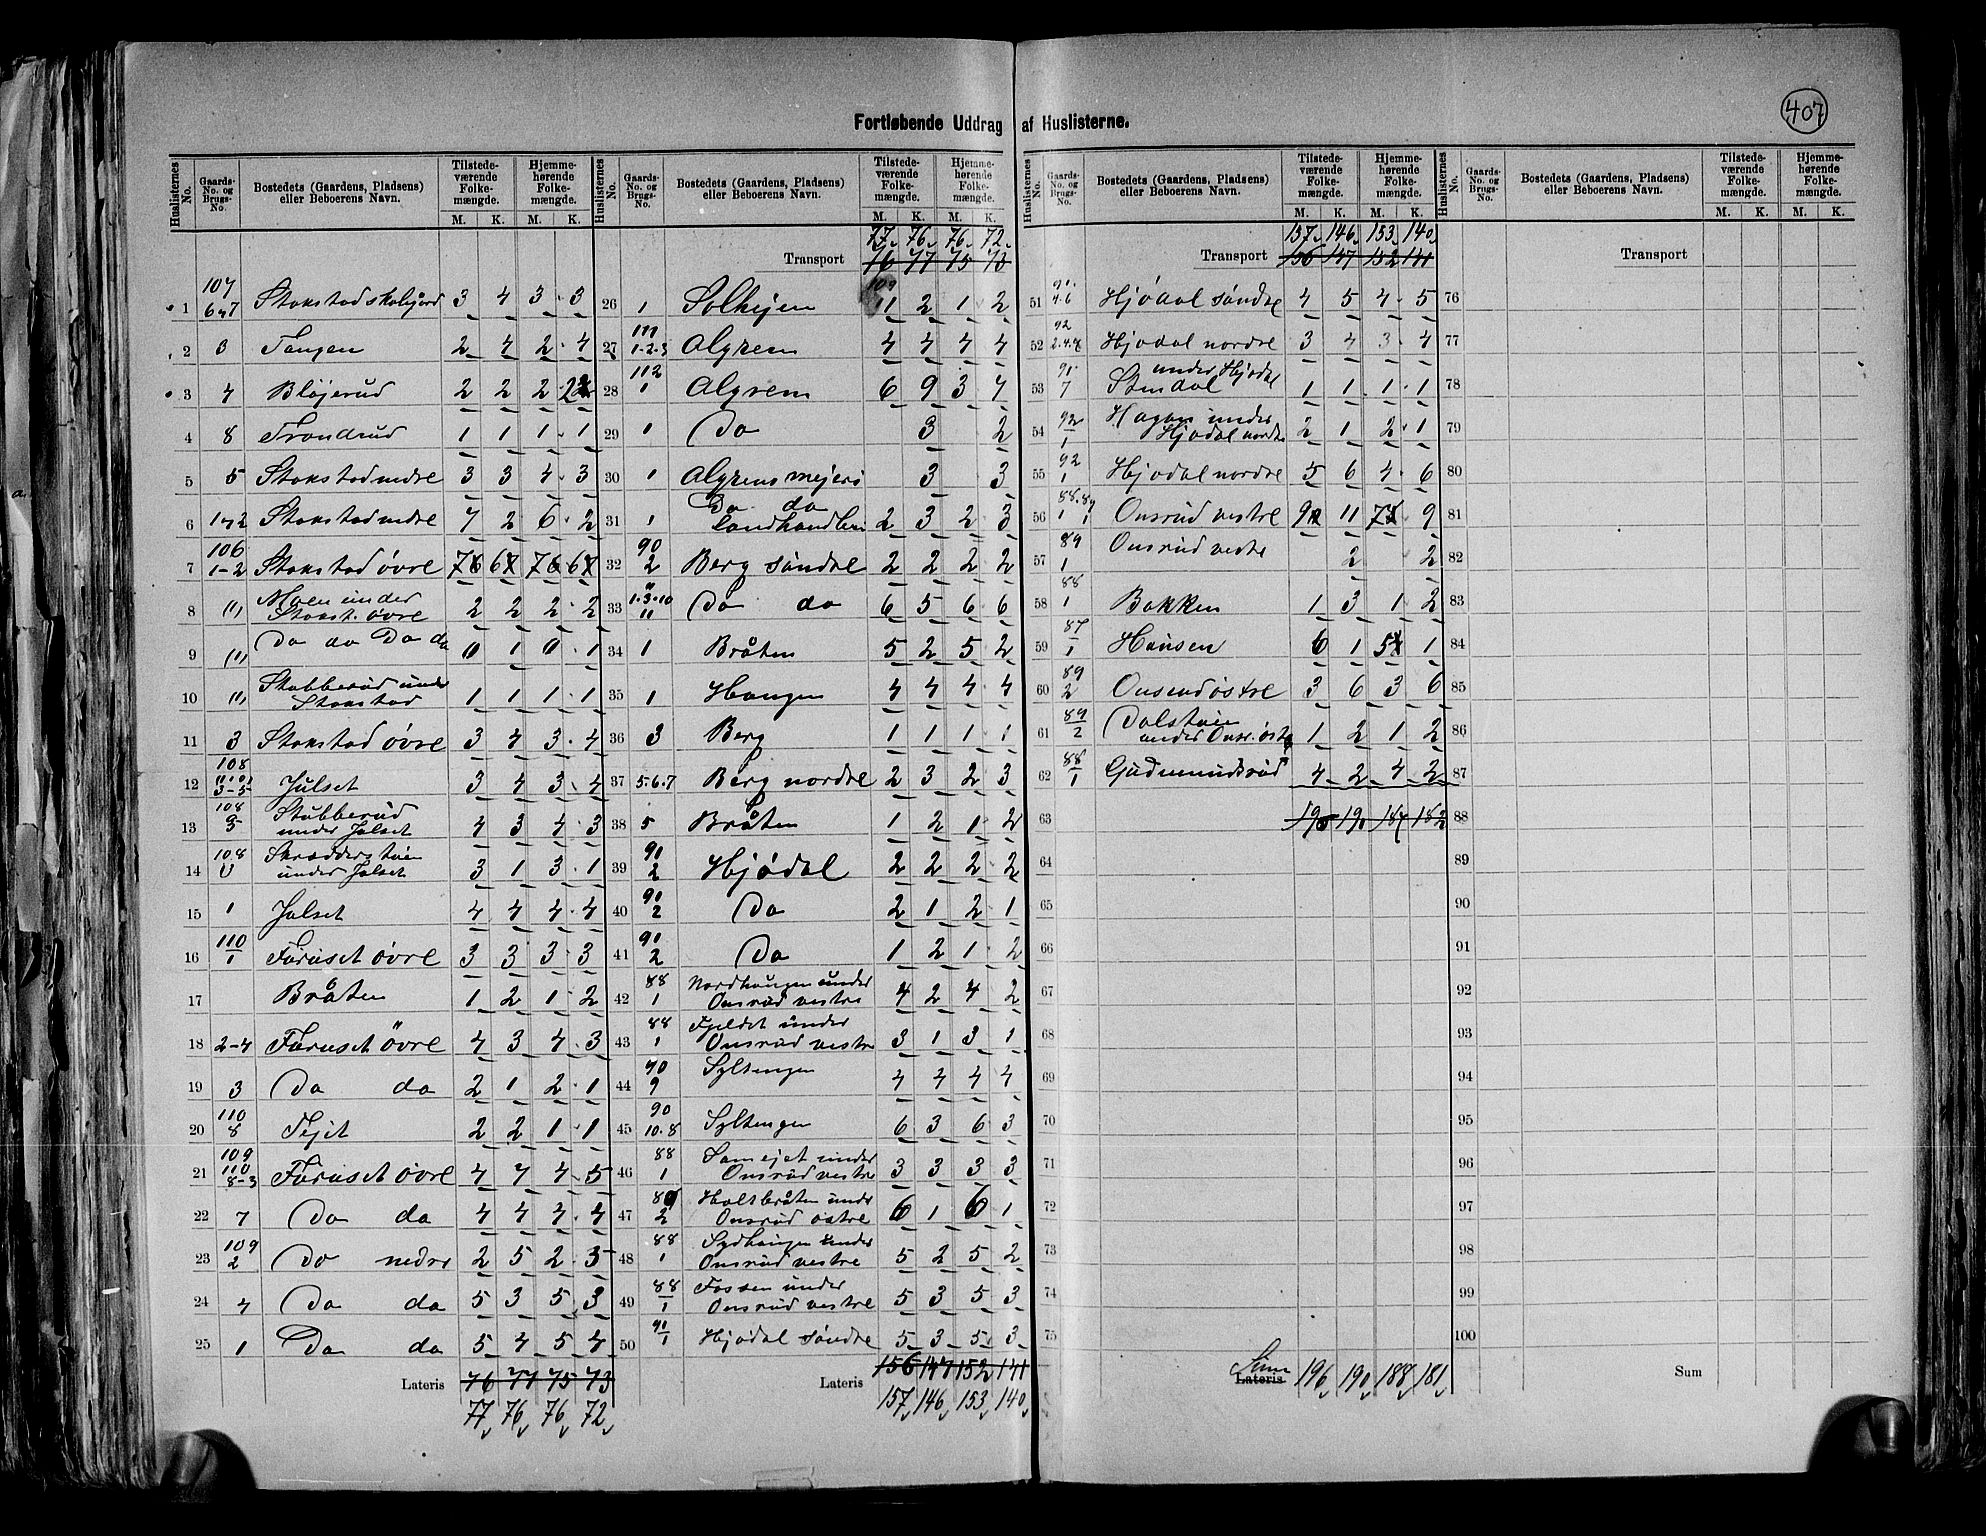 407
Fortløbende Uddrag af Huslisterne.
Huslisternes No. | Gaards-No. og Brugs-No. | Bostedets (Gaardens, Pladsens) eller Beboerens Navn. | Tilstedeværende Folkemængde. M. K. | Hjemmehørende Folkemængde. M. K.
1 107 6 7 Stokstad 3 4 3 3
2 3 Tangen 2 4 2 4
3 4 Bløjerud 2 2 2 2
4 8 Trondrud 1 1 1 1
5 5 Stokstad nedre 3 3 4 3
6 1 2 Stokstad nedre 7 2 6 2
7 106 1-2 Stokstad øvre 7 6 7 6
8 (1) Moen under Stokst. øvre 2 2 2 2
9 (1) Do do Do do 0 1 0 1
10 (1) Stubberud under Stokstad 1 1 1 1
11 3 Stokstad øvre 3 4 3 4
12 108 3-5 Julset 3 4 3 4
13 108 Stubberud under Julset 4 3 4 3
14 108 Skrædderstuen under Julset 3 1 3 1
15 1 Julset 4 4 4 4
16 110 1 Furuset øvre 3 3 3 3
17 Bråten 1 2 1 2
18 2-4 Furuset övre 4 3 4 3
19 3 Do do 2 1 2 1
20 110 8 Tejet 2 2 1 1
21 109 110 8-3 Furuset øvre 4 7 4 5
22 7 Do do 4 4 4 4
23 109 2 Do nedre 2 5 2 5
24 4 Do da 5 3 5 3
25 1 Do da 5 4 5 4
Lateris 76 77 75 73
77 76 76 72
77 76 76 72
Transport 76 77 75 73
26 109 1 Solhejen 11 2 1 2
27 111 1-2-3 Algrem 4 4 4 4
28 112 1 Algrem 6 9 3 7
29 1 Do 3 2
30 1 Algrens mejeri 3 3
31 1 Do do landhandleri 2 3 2 3
32 90 2 Berg søndre 2 2 2 2
33 1-3-10 11 Do do 6 5 6 6
34 1 Bråten 5 2 5 2
35 1 Haugen 4 4 4 4
36 3 Berg 1 1 1 1
37 5-6-7 Berg nordre 2 3 2 3
38 5 Bråten 1 2 1 2
39 90 2 Hjødal 2 2 2 2
40 91 2 Do 2 1 2 1
41 91 2 Do 1 2 1 2
42 88 1 Nordhaugen under Onsrud vestre 4 2 4 2
43 88 1 Fjeldet under Onsrud vestre 3 1 3 1
44 90 9 Syltengen 4 4 4 4
45 90 10-8 Syltengen 6 3 6 3
46 88 1 under Onsrud vestre 3 3 3 3
47 89 2 Holtbråten under Onsrud østre 6 1 6 1
48 88 1 Sydhaugen under Onsrud vestre 5 2 5 2
49 88/1 Fossen under Onsrud vestre 5 3 5 3
50 91/1 Hjødal søndre 5 3 5 3
Lateris 156 147 152 141
157 146 153 140
157 146 153 140
Transport 156 147 152 141
51 91 4-6 Hjødal søndre 4 5 4 5
52 92 2-4-8 Hjødal nordre 3 4 3 4
53 91 7 Stendal under Hjødal 1 1 1 1
54 92/1 Hagen under Hjødal nordre 2 1 2 1
55 92 1 Hjødal nordre 5 6 4 6
56 88-89 1 1 Onsrud vestre 9 11 7 9
57 89 1 Onsrud vestre 2 2
58 88 1 Bakken 1 3 1 2
59 87 1 Hansen 6 1 5 1
60 89 2 Onsrud østre 3 6 3 6
61 89/2 Dalstuen under Onsr. østre 1 2 1 2
62 88/1 Gudmundsrud 4 2 4 2
63 195 190 187 182
64
65
66
67
68
69
70
71
72
73
74
75
Sum Lateris 196 190 188 181
Transport
76
77
78
79
80
81
82
83
84
85
86
87
88
89
90
91
92
93
94
95
96
97
98
99
100
Sum